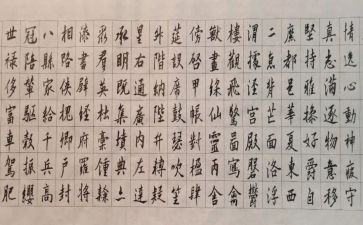 情逸心動神疲守
真志滿逐物意移
堅持雅操好爵自
縻都邑華夏東西
二京背芒面洛浮
渭據涇宮殿盤鬱
樓觀飛驚圖寫禽
獸畫綵仙靈丙舍
傍啟甲帳對楹肆
筵設席鼓瑟吹笙
升階納陛弁轉疑
星右通廣內左達
承明既集墳典亦
聚群英杜稾鍾隸
漆書壁經府羅將
相路俠槐卿戶封
八縣家給千兵高
冠陪輦驅轂振纓
世祿侈富車駕肥